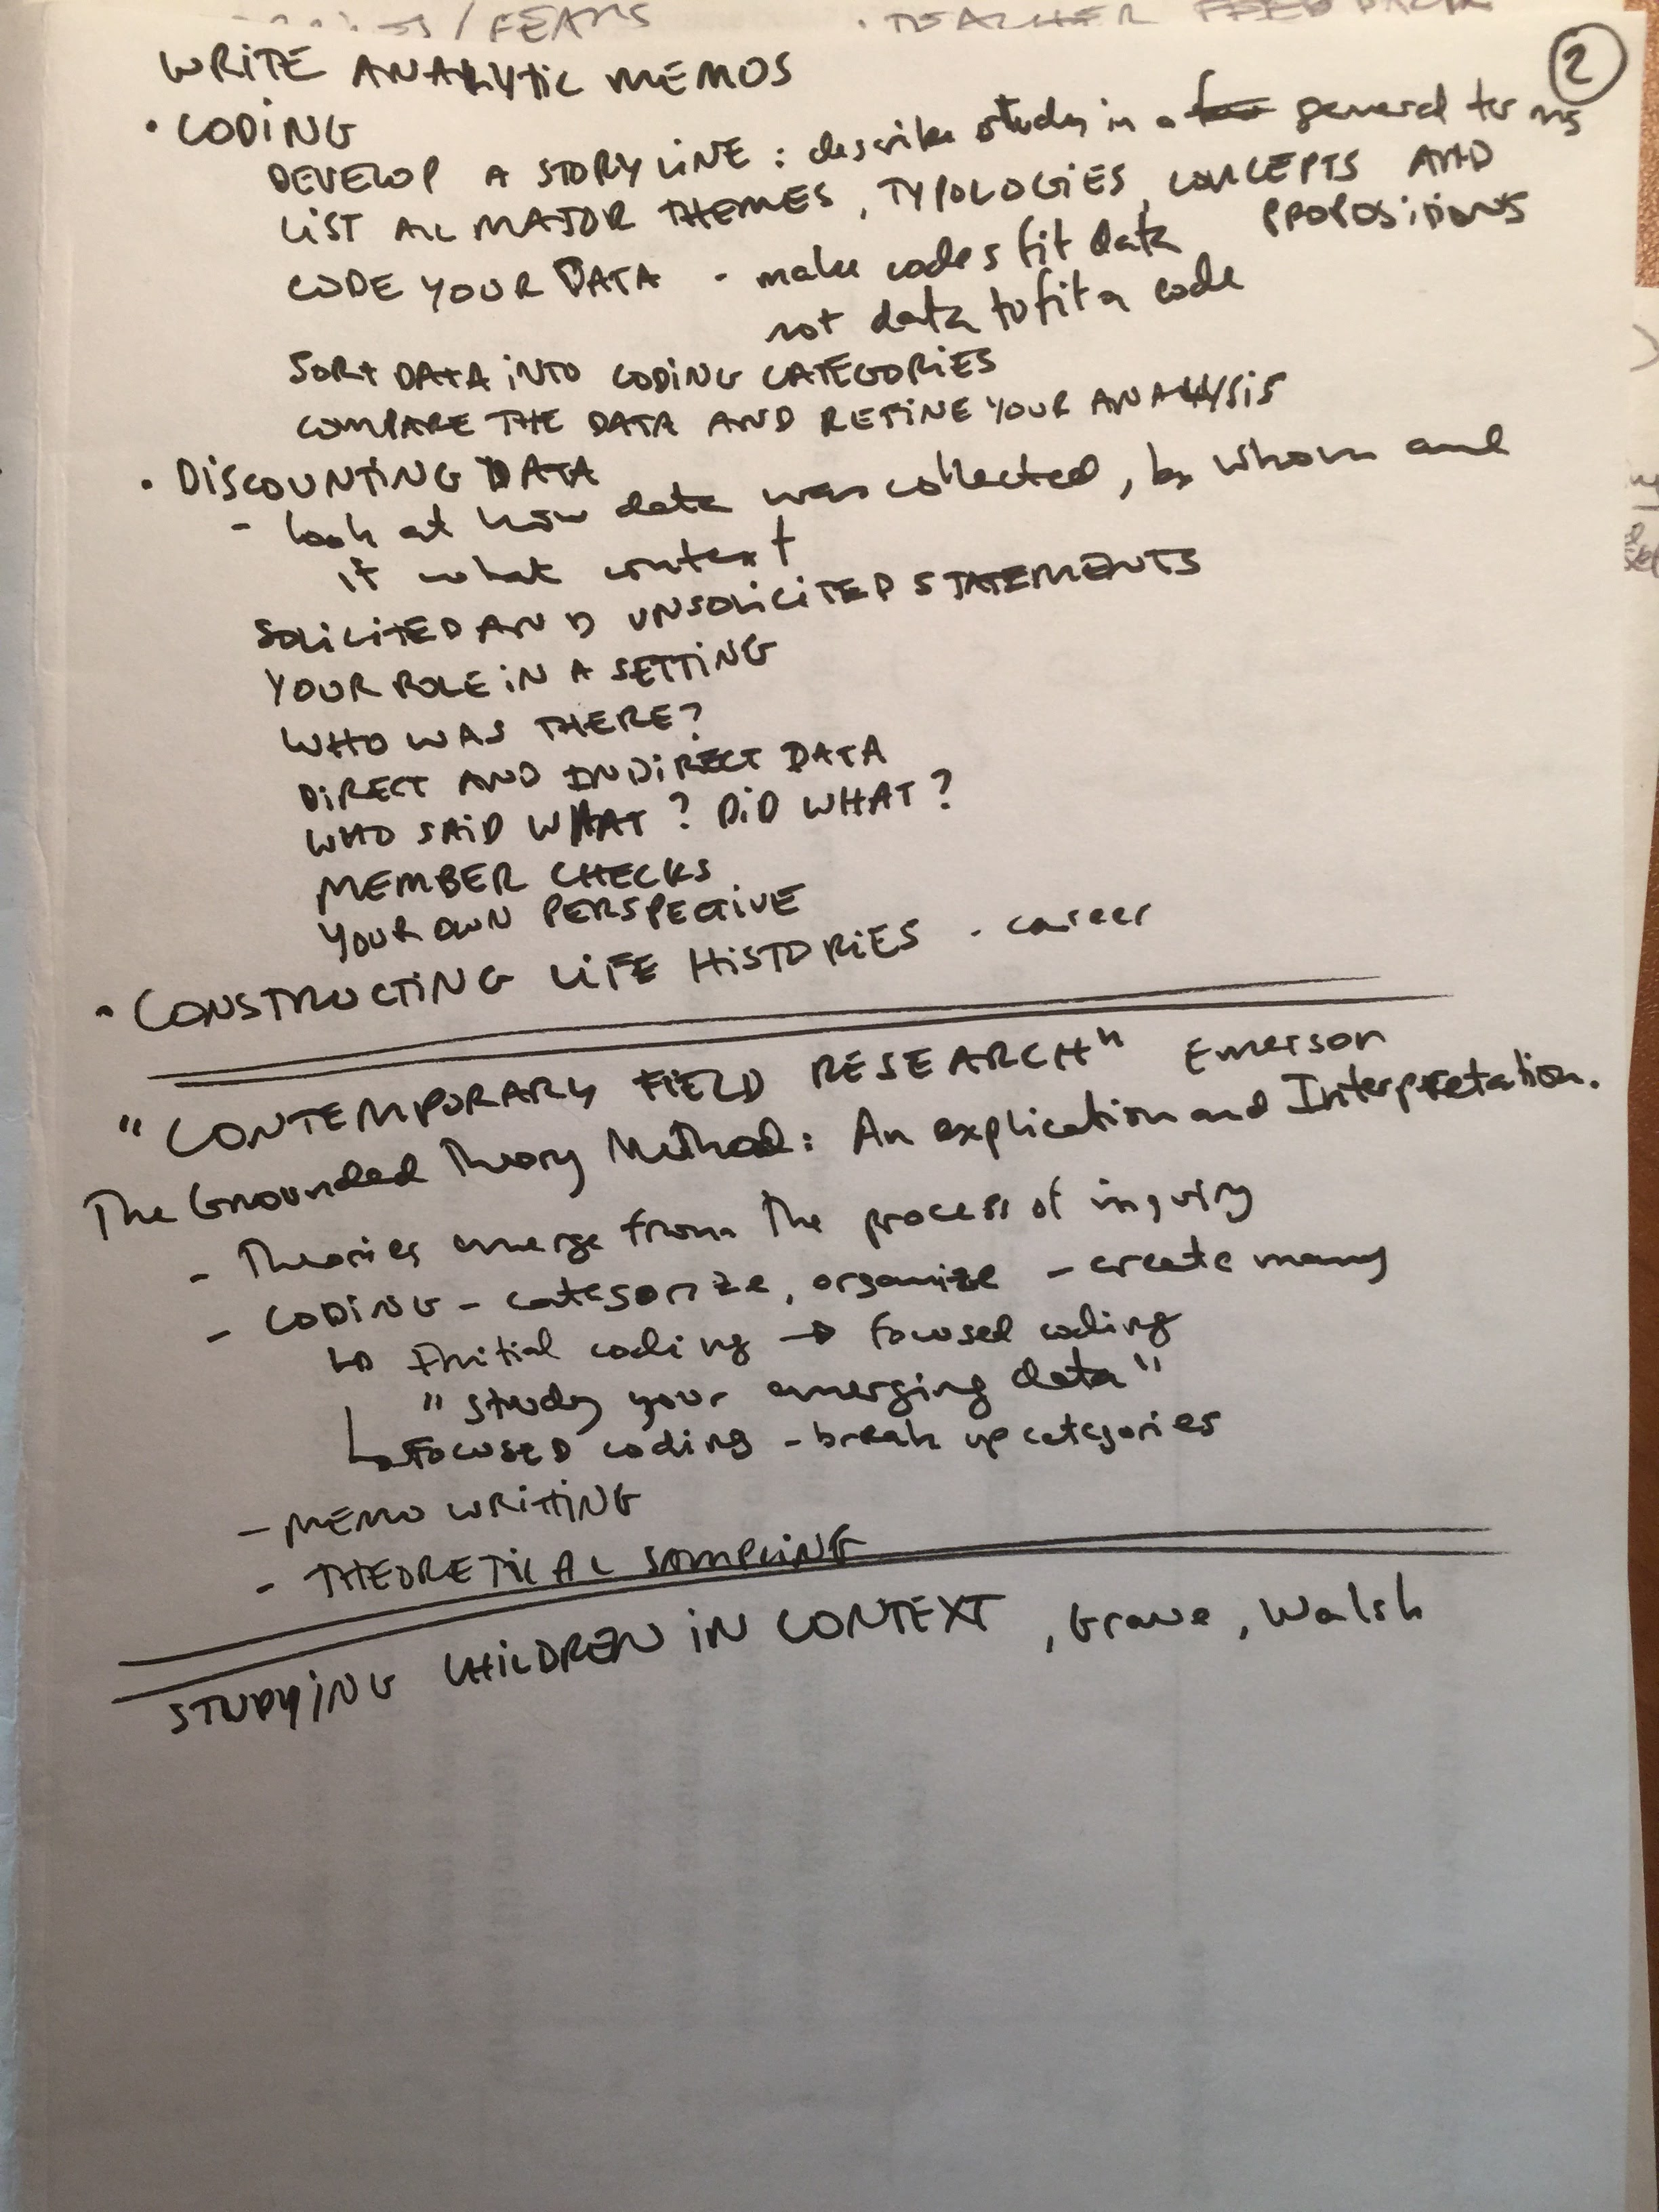 / FEARS · TEACHER FEEDBACK
WRITE ANALYTIC MEMOS
2
· CODING
DEVELOP A STORY LINE : describe study in a few general terms
LIST ALL MAJOR THEMES, TYPOLOGIES, CONCEPTS AND
PROPOSITIONS
CODE YOUR DATA - make codes fit data
not data to fit a code
SORT DATA INTO CODING CATEGORIES
COMPARE THE DATA AND REFINE YOUR ANALYSIS
· DISCOUNTING DATA
- look at how data was collected, by whom and
if what context
SOLICITED AND UNSOLICITED STATEMENTS
YOUR ROLE IN A SETTING
WHO WAS THERE?
DIRECT AND INDIRECT DATA
WHO SAID WHAT? DID WHAT?
MEMBER CHECKS
YOUR OWN PERSPECTIVE
· CONSTRUCTING LIFE HISTORIES - career
"CONTEMPORARY FIELD RESEARCH" Emerson
The Grounded Theory Method: An explication and Interpretation.
- Theories emerge from the process of inquiry
- CODING - categorize, organize - create many
↳ Initial coding → focused coding
"study your emerging data"
↳ FOCUSED coding - break up categories
- MEMO WRITING
- THEORETICAL SAMPLING
STUDYING CHILDREN IN CONTEXT, Graue, Walsh